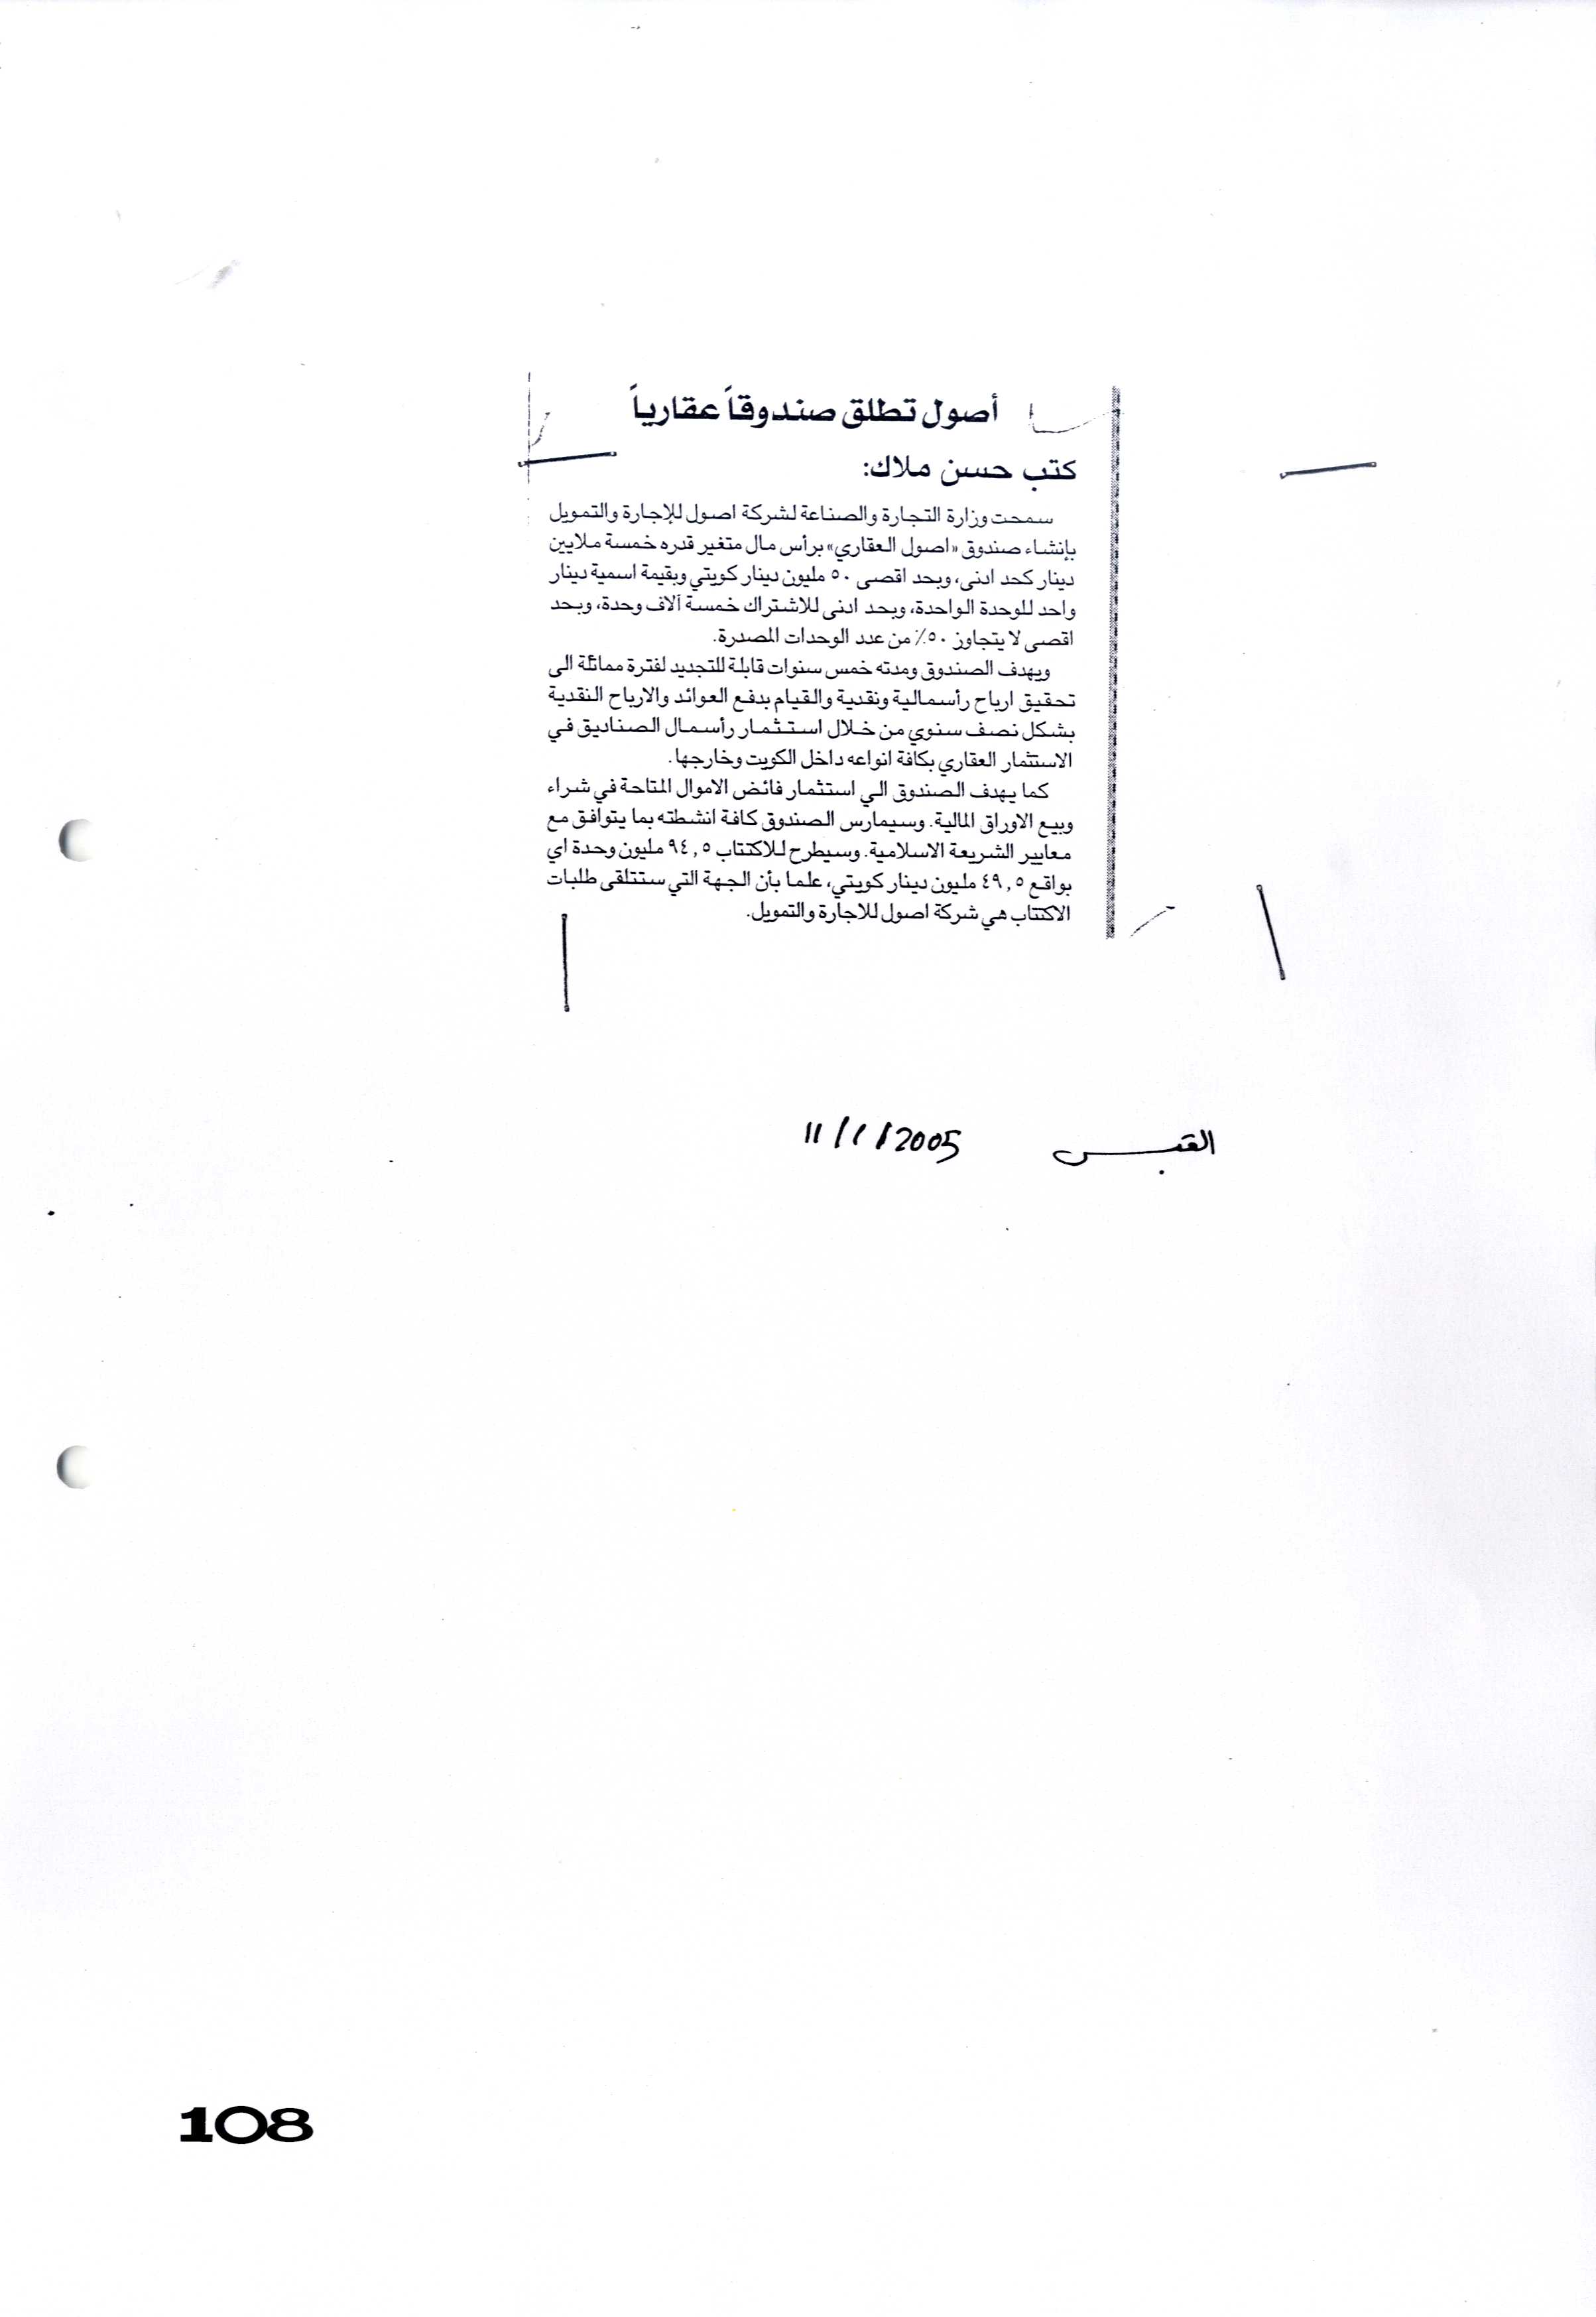 أصول تطلق صندوقاً عقارياً
كتب حسن ملاك:
سمحت وزارة التجارة والصناعة لشركة اصول للإجارة والتمويل
بإنشاء صندوق «اصول العقاري» برأس مال متغير قدره خمسة ملايين
دينار كحد ادنى، وبحد اقصى ٥٠ مليون دينار كويتي وبقيمة اسمية دينار
واحد للوحدة الواحدة، وبحد ادنى للاشتراك خمسة آلاف وحدة، وبحد
اقصى لا يتجاوز ٥٠٪ من عدد الوحدات المصدرة.
ويهدف الصندوق ومدته خمس سنوات قابلة للتجديد لفترة مماثلة الى
تحقيق ارباح رأسمالية ونقدية والقيام بدفع العوائد والارباح النقدية
بشكل نصف سنوي من خلال استثمار رأسمال الصناديق في
الاستثمار العقاري بكافة انواعه داخل الكويت وخارجها.
كما يهدف الصندوق الي استثمار فائض الاموال المتاحة في شراء
وبيع الاوراق المالية. وسيمارس الصندوق كافة انشطته بما يتوافق مع
معايير الشريعة الاسلامية. وسيطرح للاكتتاب ٩٤,٥ مليون وحدة اي
بواقع ٤٩,٥ مليون دينار كويتي، علما بأن الجهة التي ستتلقى طلبات
الاكتتاب هي شركة اصول للاجارة والتمويل.
القبس 11/1/2005
108